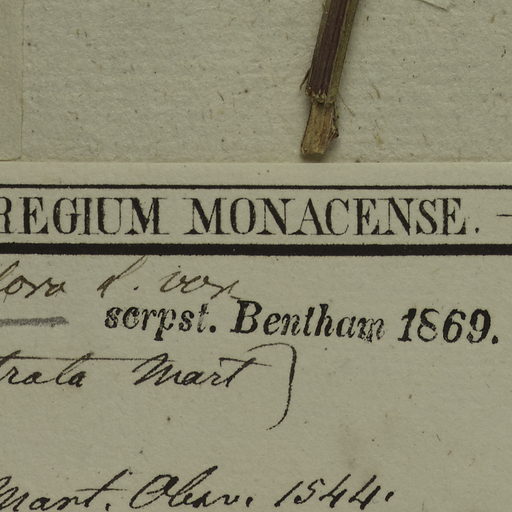 REGIUM MONACENSE. —
lora d. var
scrpst. Bentham 1869.
trata Mart)
Mart. Obsv. 1544.